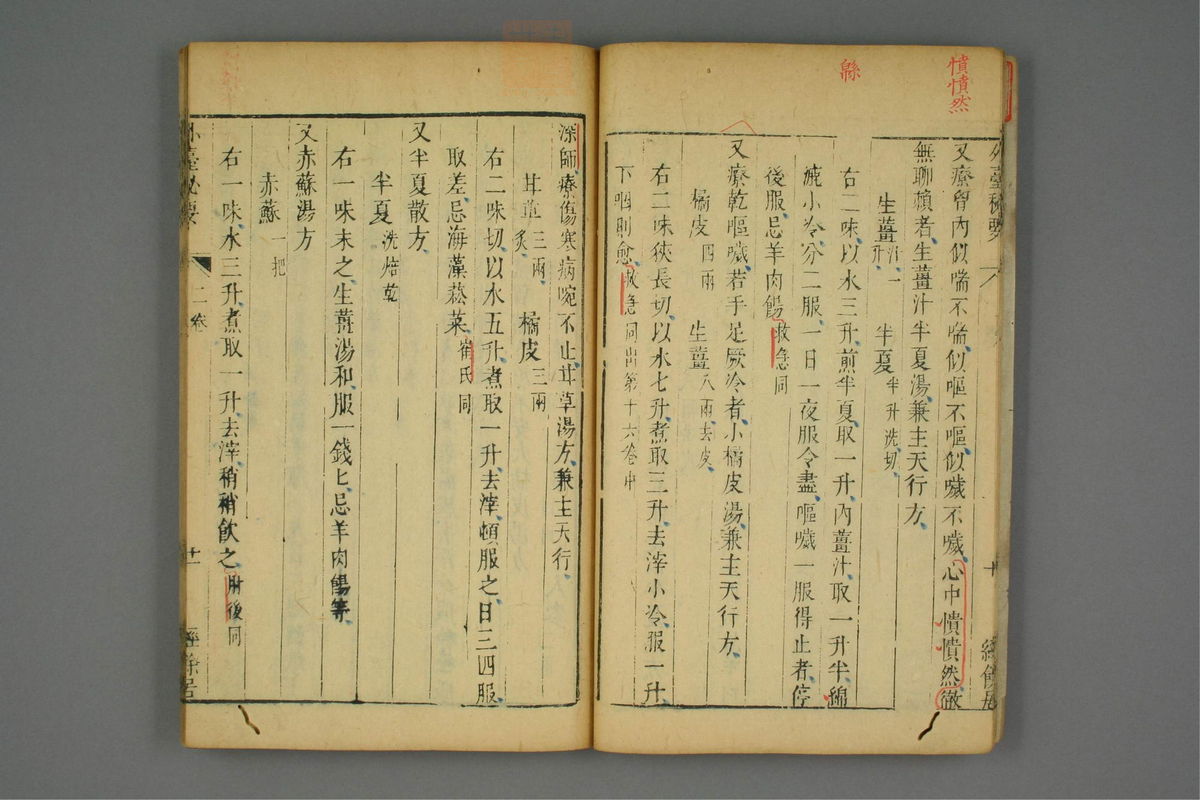 憒憒然
緜
又療胸內似喘不喘似嘔不嘔似噦不噦心中憒憒然徹
無聊賴者生薑汁半夏湯兼主天行方
生薑汁一升 半夏半升洗切
右二味以水三升煎半夏取一升內薑汁取一升半綿
漉小冷分二服一日一夜服令盡嘔噦一服得止者停
後服忌羊肉餳救急同
又療乾嘔噦若手足厥冷者小橘皮湯兼主天行方
橘皮四兩 生薑八兩去皮
右二味狹長切以水七升煮取三升去滓小冷服一升
下咽則愈救急同出第十六卷中
深師療傷寒病啘不止甘草湯方兼主天行
甘草三兩炙 橘皮三兩
右二味切以水五升煮取一升去滓頓服之日三四服
取差忌海藻菘菜崔氏同
又半夏散方
半夏洗焙乾
右一味末之生薑湯和服一錢匕忌羊肉餳等
又赤蘇湯方
赤蘇一把
右一味水三升煮取一升去滓稍稍飲之肘後同
外臺秘要 二卷 十一 經餘居